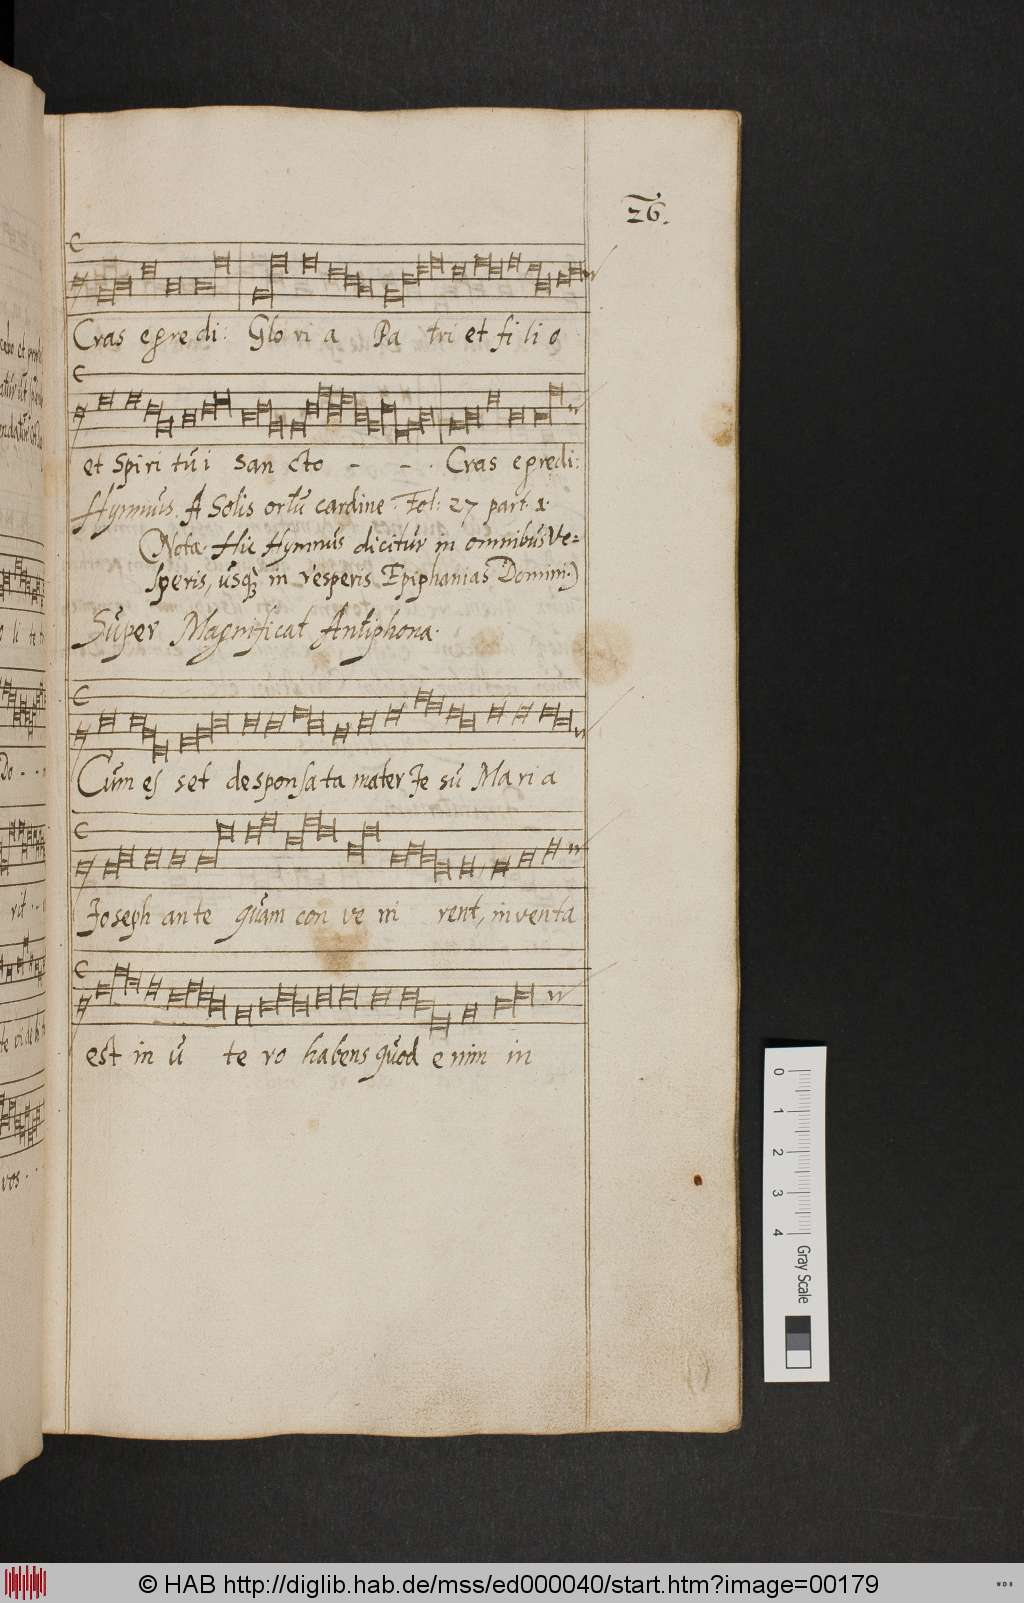 26.
Cras egredi: Glo ri a Pa tri et fi li o
et Spiri tui San cto - - . Cras egredi:
Hymnus. A Solis ortu cardine. Fol: 27 part. 1.
(Nota. Hic Hymnus dicitur in omnibus Ve=
speris, usq; in vesperis Epiphanias Domini.)
Super Magnificat Antiphona.
Cum es set desponsa ta mater Je su Ma ri a
Joseph an te quam con ve ni rent, in ven ta
est in u te ro habens quod e nim in
li te
Do - -
rit - -
vos .
0 1 2 3 4 Gray Scale
© HAB http://diglib.hab.de/mss/ed000040/start.htm?image=00179